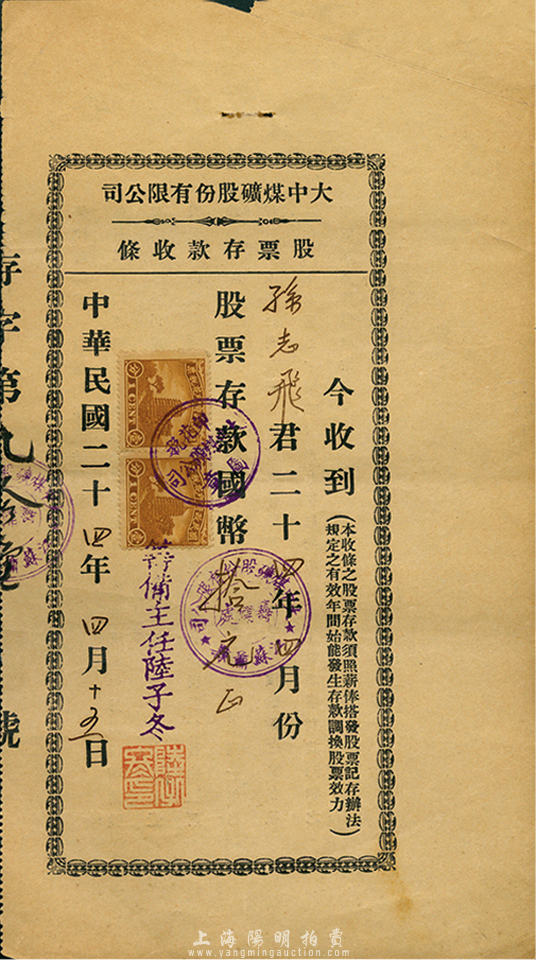 大中煤礦股份有限公司
股票存款收條
今收到
(本收條之股票存款須照薪俸搭發股票記存辦法
規定之有效年間始能發生存款調換股票效力)
孫志飛君二十四年四月份
股票存款國幣拾元正
籌備主任陸子冬
中華民國二十四年四月十五日
存字第九 號
1 CENT
1 CENT
上海陽明拍賣
www.yangmingauction.com